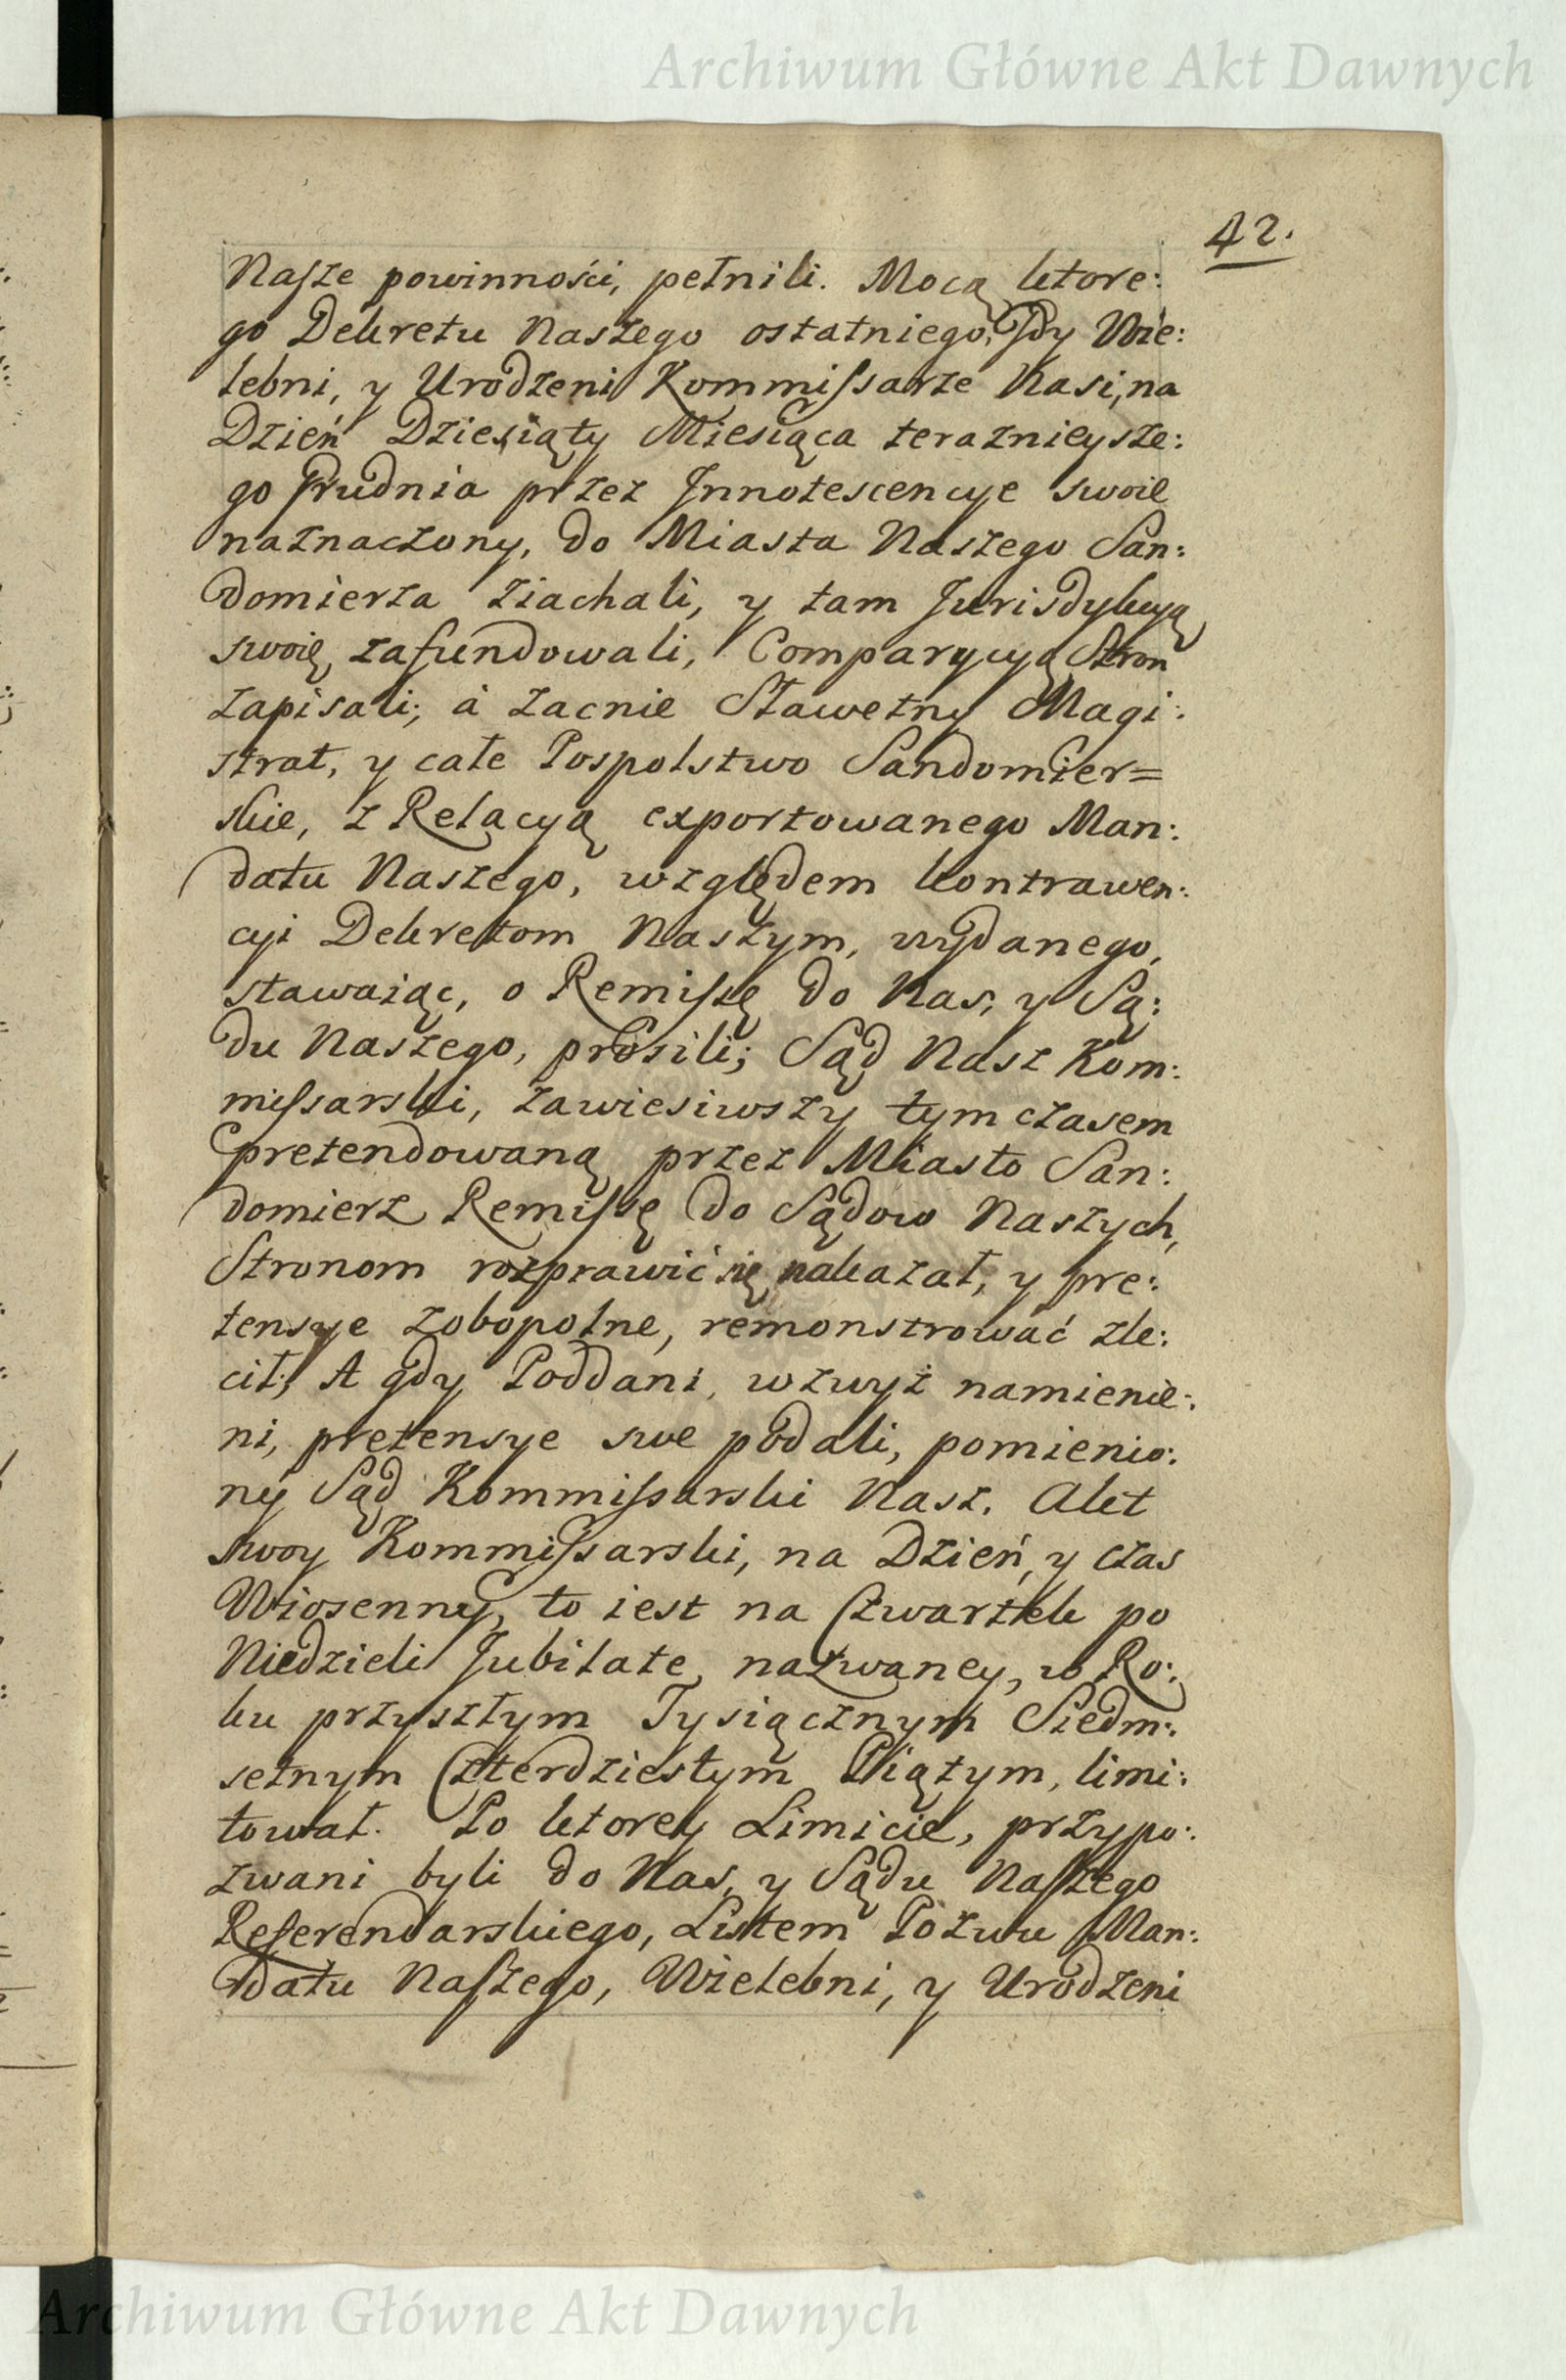 Archiwum Główne Akt Dawnych
42.
Nasze powinności, pełnili. Mocą ktore:
go Dekretu Naszego ostatniego, Gdy Wie:
lebni, y Urodzeni Kommissarze Nasi, na
Dzień Dziesiąty Miesiąca teraznieysze:
go Grudnia przez Jnnotescencye swoie
naznaczony, do Miasta Naszego San:
domierza ziachali, y tam Jurisdykcyą
swoię zafundowali, Comparycyą Stron
zapisali; á zacnie Sławetny Magi:
strat, y całe Pospolstwo Sandomier=
skie, z Relacyą exportowanego Man:
datu Naszego, względem kontrawen:
cyi Dekretom Naszym, wydanego,
stawaiąc, o Remissę do Nas, y Są:
du Naszego, prosili; Sąd Nasz Kom:
missarski, zawiesiwszy tym czasem
pretendowaną przez Miasto San:
domierz Remissę do Sądow Naszych,
Stronom rozprawić się nakazał, y pre:
tensye zobopolne, remonstrować zle:
cił; A gdy Poddani, wzwyż namienie:
ni, pretensye swe podali, pomienio:
ny Sąd Kommissarski Nasz. Akt
swoy Kommissarski, na Dzień, y czas
Wiosenny, to iest na Czwartek po
Niedzieli Jubilate, nazwaney, w Ro:
ku przyszłym Tysiącznym Siedm:
setnym Czterdziestym Piątym, limi:
tował. Po ktorey Limicie, przypo:
zwani byli do Nas, y Sądu Naszego
Referendarskiego, Listem Pozwu Man:
datu Naszego, Wielebni, y Urodzeni
Archiwum Główne Akt Dawnych